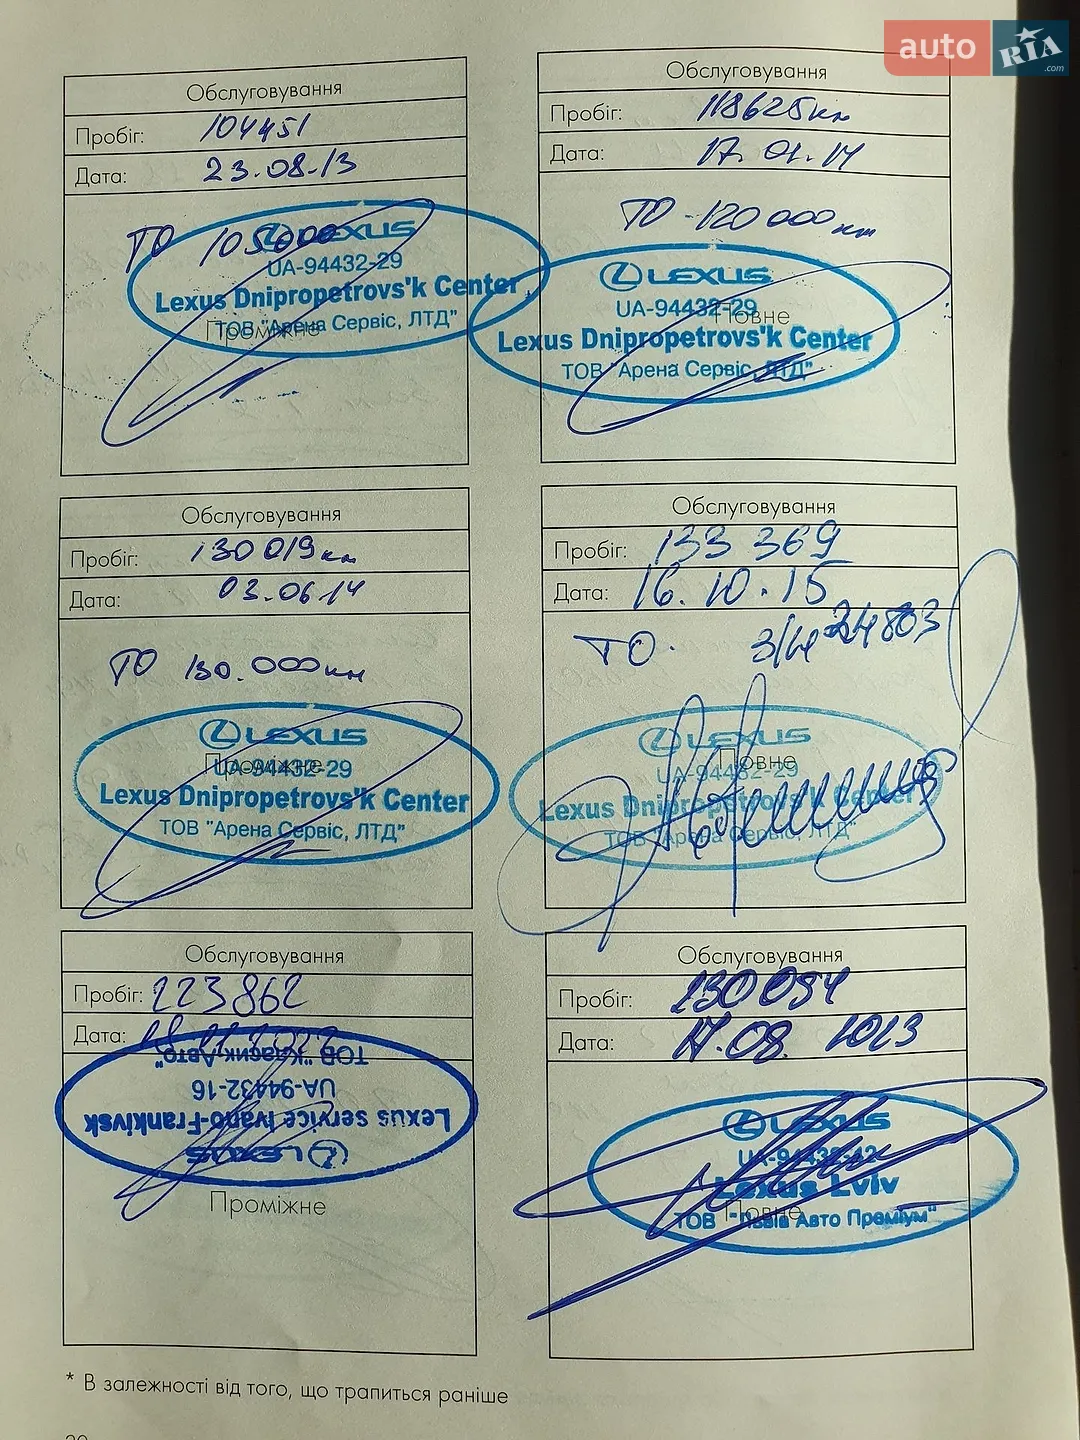 auto RIA .com
Обслуговування
Пробіг: 104451
Дата: 23.08.13
ТО 105000
LEXUS
UA-94432-29
Lexus Dnipropetrovs'k Center
ТОВ "Арена Сервіс, ЛТД"
Проміжне
Обслуговування
Пробіг: 118625км
Дата: 17.01.14
ТО 120 000 км
LEXUS
UA-94432-29
Повне
Lexus Dnipropetrovs'k Center
ТОВ "Арена Сервіс, ЛТД"
Обслуговування
Пробіг: 130 019 км
Дата: 03.06.14
ТО 130.000 км
LEXUS
Проміжне
UA-94432-29
Lexus Dnipropetrovs'k Center
ТОВ "Арена Сервіс, ЛТД"
Обслуговування
Пробіг: 133 369
Дата: 16.10.15
ТО. З/Н 24803
LEXUS
Повне
UA-94432-29
Lexus Dnipropetrovs'k Center
ТОВ "Арена Сервіс, ЛТД"
Обслуговування
Пробіг: 223862
Дата:
ТОВ "Класик Авто"
UA-94432-16
Lexus service Ivano-Frankivsk
LEXUS
Проміжне
Обслуговування
Пробіг: 230 094
Дата: 17.08. 2023
LEXUS
UA-94432-42
Lexus Lviv
Повне
ТОВ "Львів Авто Преміум"
* В залежності від того, що трапиться раніше